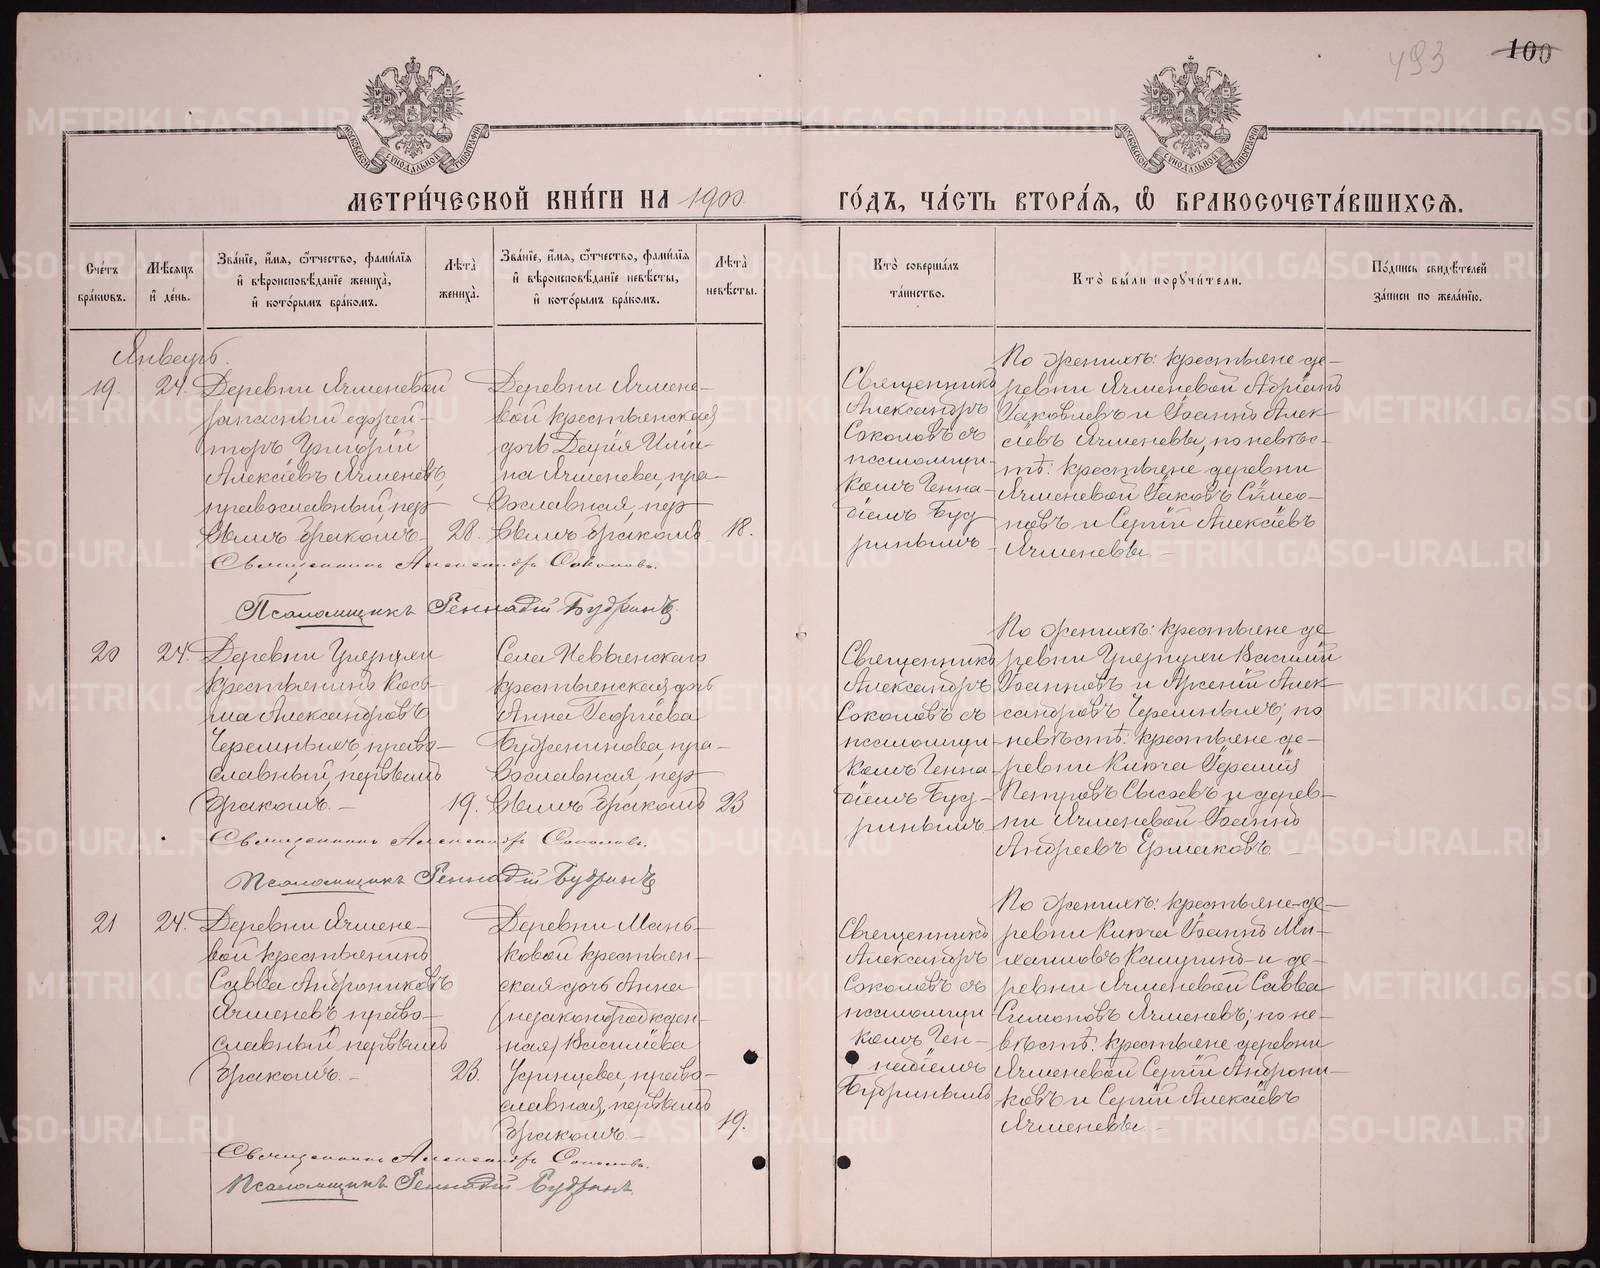 493
100
МОСКОВСКОЙ СѴНОДАЛЬНОЙ ТИПОГРАФІИ
МОСКОВСКОЙ СѴНОДАЛЬНОЙ ТИПОГРАФІИ
МЕТРИ́ЧЕСКОЙ КНИ́ГИ НА 1900
ГО́ДЪ, ЧА́СТЬ ВТОРА́Ѧ, Ѽ БРАКОСОЧЕТА́ВШИХСѦ.
Сче́тъ бра́кѡвъ.
Мѣ́сѧцъ и҆ де́нь.
Зва́нїе, и҆́мѧ, ѻ҆́тчество, фами́лїѧ и҆ вѣроисповѣ́данїе жениха̀, и҆ кото́рымъ бра́комъ.
Лѣ́та жениха̀.
Зва́нїе, и҆́мѧ, ѻ҆́тчество, фами́лїѧ и҆ вѣроисповѣ́данїе невѣ́сты, и҆ кото́рымъ бра́комъ.
Лѣ́та невѣ́сты.
Кто̀ соверша́лъ та́инство.
Кто̀ бы́ли порꙋчи́тели.
По́дпись свидѣ́телей за́писи по жела́нїю.
Январь.
19.
24.
Деревни Ячменевой
запасный ефрей-
торъ Григорій
Алексѣевъ Ячменевъ,
православный, пер
вымъ бракомъ.
28.
Деревни Ячмене-
вой крестьянская
дочь
на Ячменева, пра-
вославная, пер
вымъ бракомъ
18.
Священникъ
Александръ
Соколовъ съ
псаломщи-
комъ Генна-
діемъ Буд
ринымъ
По женихѣ: крестьяне де-
ревни Ячменевой Адріанъ
Іаковлевъ и Іоаннъ Алек
сѣевъ Ячменевы, по невѣс-
тѣ: крестьяне деревни
Ячменевой Іаковъ Симео-
новъ и Сергій Алексѣевъ
Ячменевы. -
Священникъ Александръ Соколовъ.
Псаломщикъ Геннадій Будринъ
20
24.
Деревни
крестьянинъ Кось-
ма Александровъ
Черемныхъ, право-
славный, первымъ
бракомъ. -
19.
Села Невьянскаго
крестьянская дочь
Анна Георгіева
пра-
вославная, пер
вымъ бракомъ
23
Священникъ
Александръ
Соколовъ съ
псаломщи-
комъ Генна
діемъ Буд-
ринымъ
По женихѣ: крестьяне де
ревни Василій
Іоанновъ и Арсеній Алек
сандровъ Черемныхъ; по
невѣстѣ: крестьяне де-
ревни Ключа Іеремія
Петровъ Сысоевъ и дерев-
ни Ячменевой Іоаннъ
Андреевъ Ермаковъ. -
Священникъ Александръ Соколовъ.
Псаломщикъ Геннадій Будринъ
21
24.
Деревни Ячмене-
вой крестьянинъ
Савва Андрониковъ
Ячменевъ право-
славный первымъ
бракомъ. -
23.
Деревни Мань-
ковой крестьян-
ская дочь Анна
(незаконнорожден-
ная) Василіева
право-
славная, первымъ
бракомъ. -
19.
Священникъ
Александръ
Соколовъ съ
псаломщи
комъ Ген-
надіемъ
Будринымъ
По женихѣ: крестьяне де-
ревни Ключа Іоаннъ Ми-
хаиловъ и де-
ревни Ячменевой Савва
Симоновъ Ячменевъ; по не-
вѣстѣ: крестьяне деревни
Ячменевой Сергій Андрони-
ковъ и Сергій Алексѣевъ
Ячменевы. -
Священникъ Александръ Соколовъ.
Псаломщикъ Геннадій Будринъ
METRIKI.GASO-URAL.RU